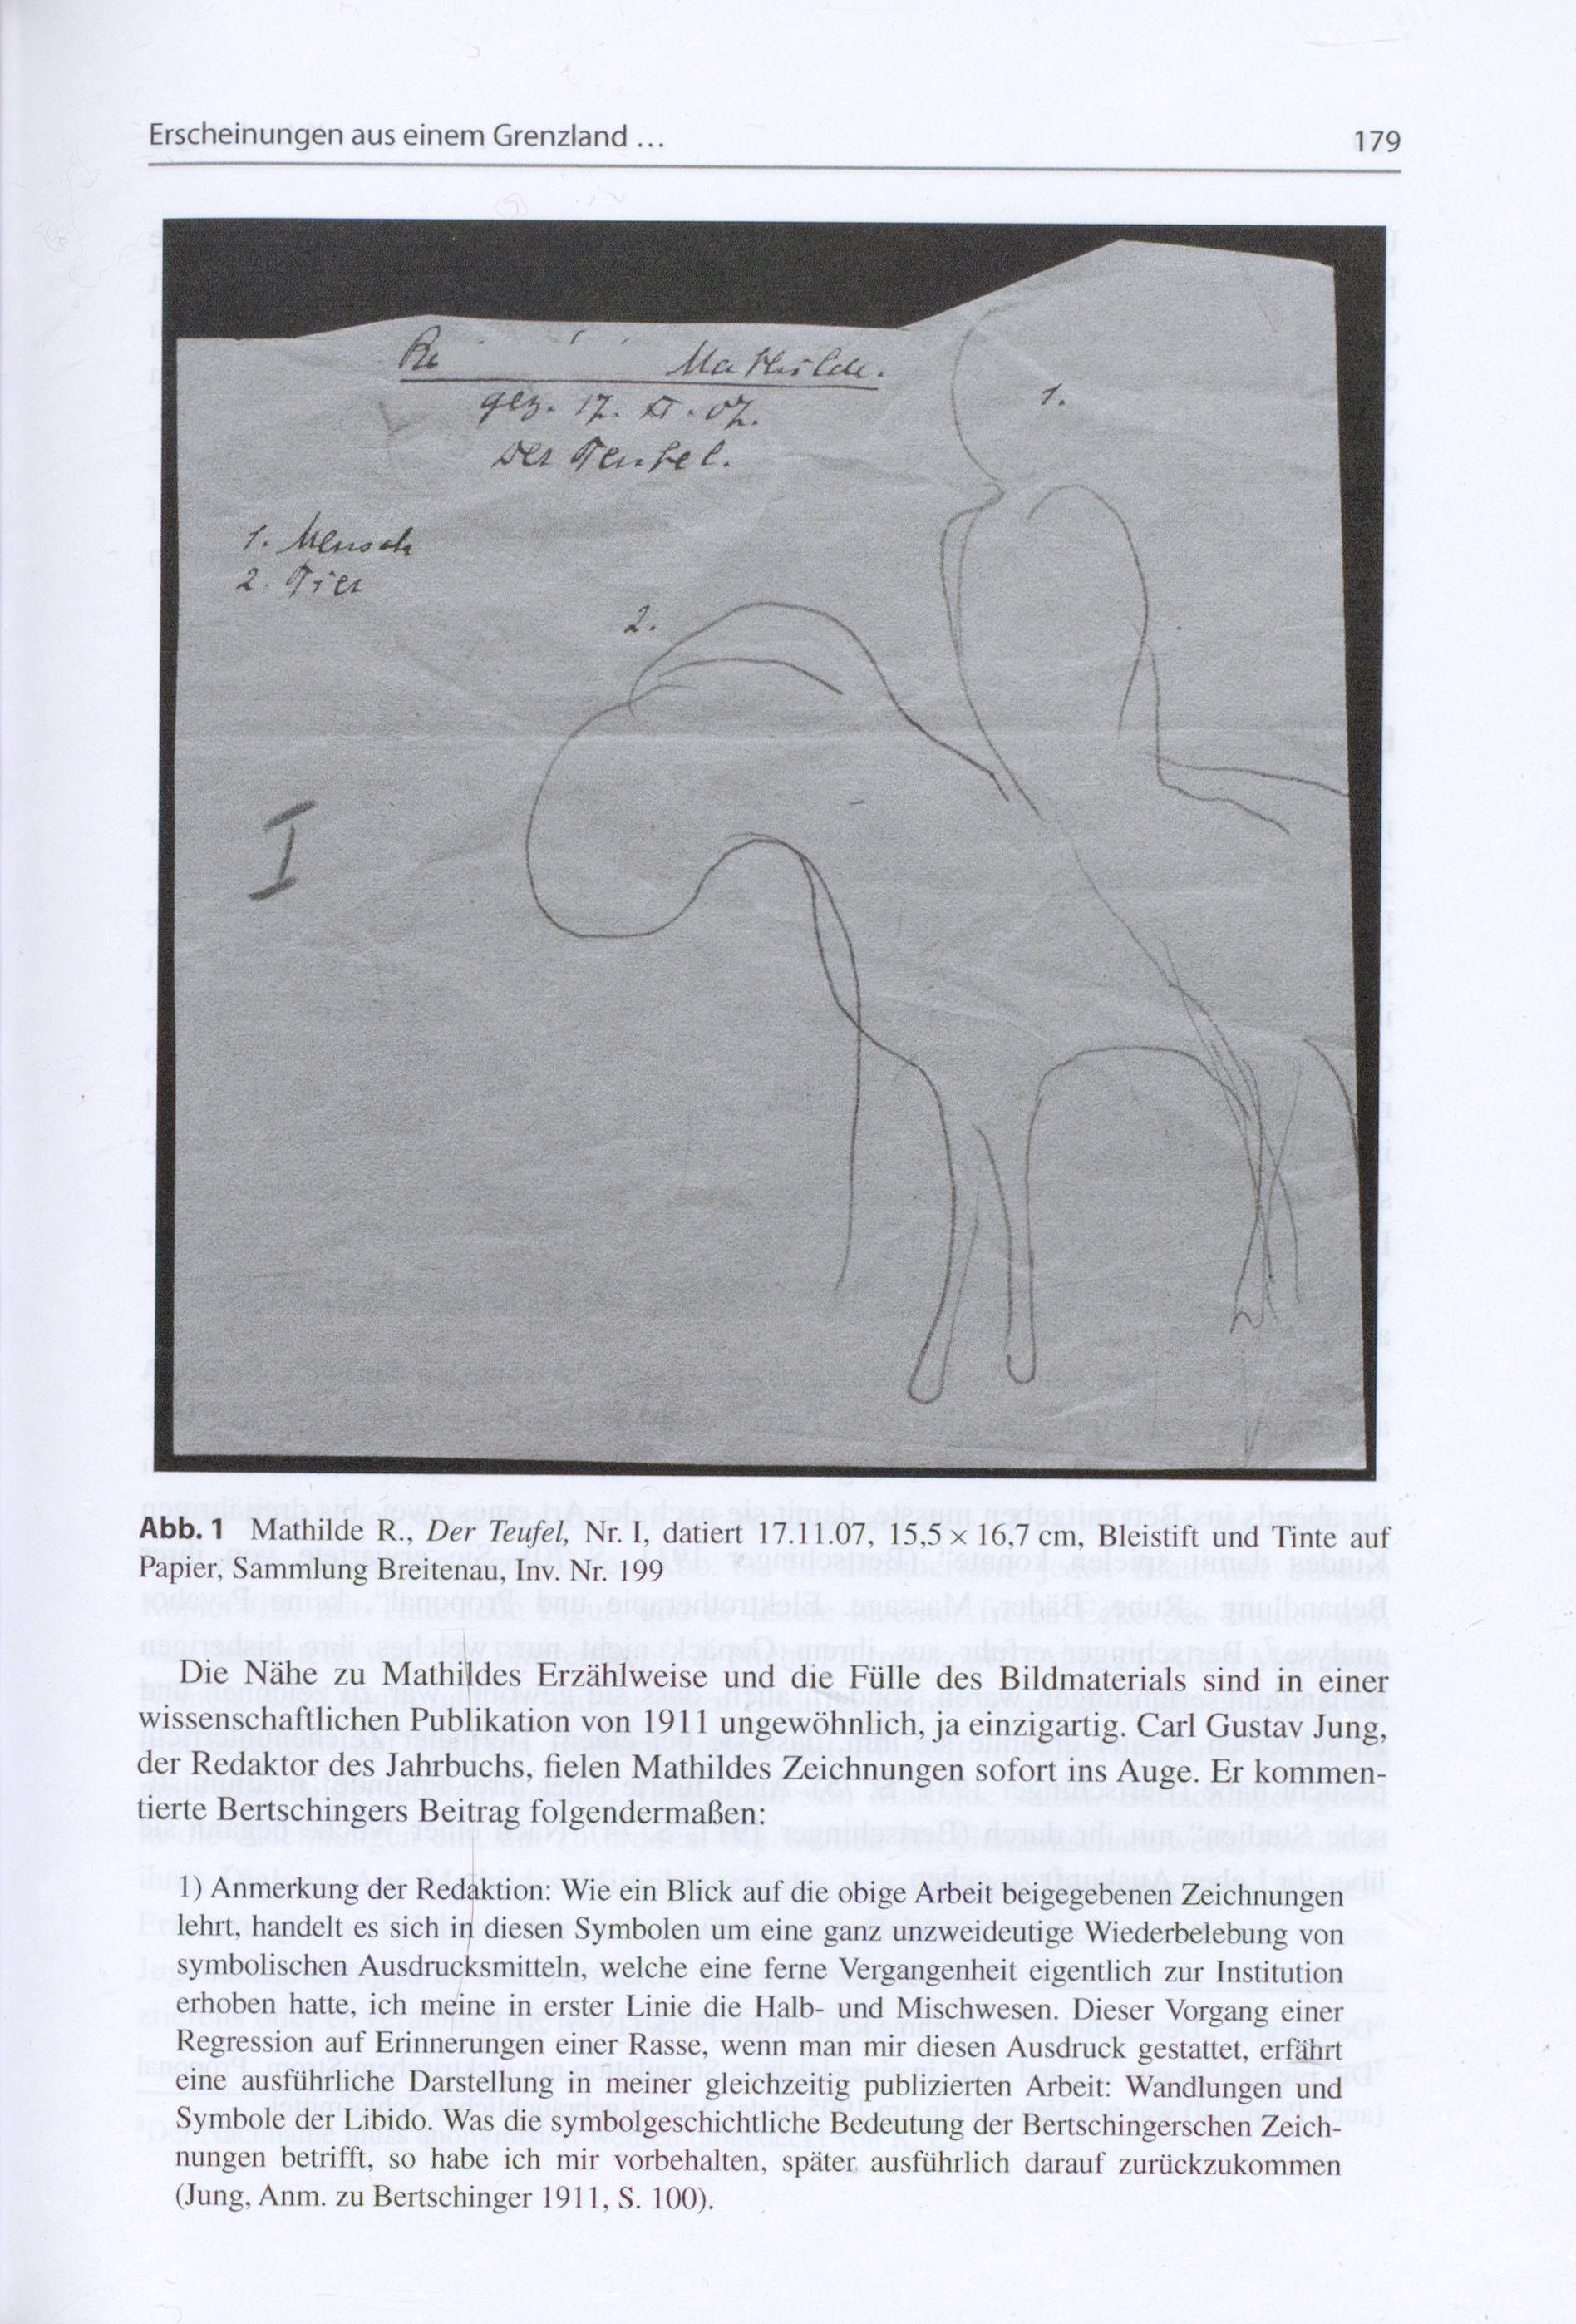 Erscheinungen aus einem Grenzland ... 179
Mathilde.
gez. 17. XI. 07.
Der Teufel.
1.
1. Mensch
2. Tier
2.
I
Abb. 1 Mathilde R., Der Teufel, Nr. I, datiert 17.11.07, 15,5 × 16,7 cm, Bleistift und Tinte auf
Papier, Sammlung Breitenau, Inv. Nr. 199
Die Nähe zu Mathildes Erzählweise und die Fülle des Bildmaterials sind in einer
wissenschaftlichen Publikation von 1911 ungewöhnlich, ja einzigartig. Carl Gustav Jung,
der Redaktor des Jahrbuchs, fielen Mathildes Zeichnungen sofort ins Auge. Er kommen-
tierte Bertschingers Beitrag folgendermaßen:
1) Anmerkung der Redaktion: Wie ein Blick auf die obige Arbeit beigegebenen Zeichnungen
lehrt, handelt es sich in diesen Symbolen um eine ganz unzweideutige Wiederbelebung von
symbolischen Ausdrucksmitteln, welche eine ferne Vergangenheit eigentlich zur Institution
erhoben hatte, ich meine in erster Linie die Halb- und Mischwesen. Dieser Vorgang einer
Regression auf Erinnerungen einer Rasse, wenn man mir diesen Ausdruck gestattet, erfährt
eine ausführliche Darstellung in meiner gleichzeitig publizierten Arbeit: Wandlungen und
Symbole der Libido. Was die symbolgeschichtliche Bedeutung der Bertschingerschen Zeich-
nungen betrifft, so habe ich mir vorbehalten, später ausführlich darauf zurückzukommen
(Jung, Anm. zu Bertschinger 1911, S. 100).